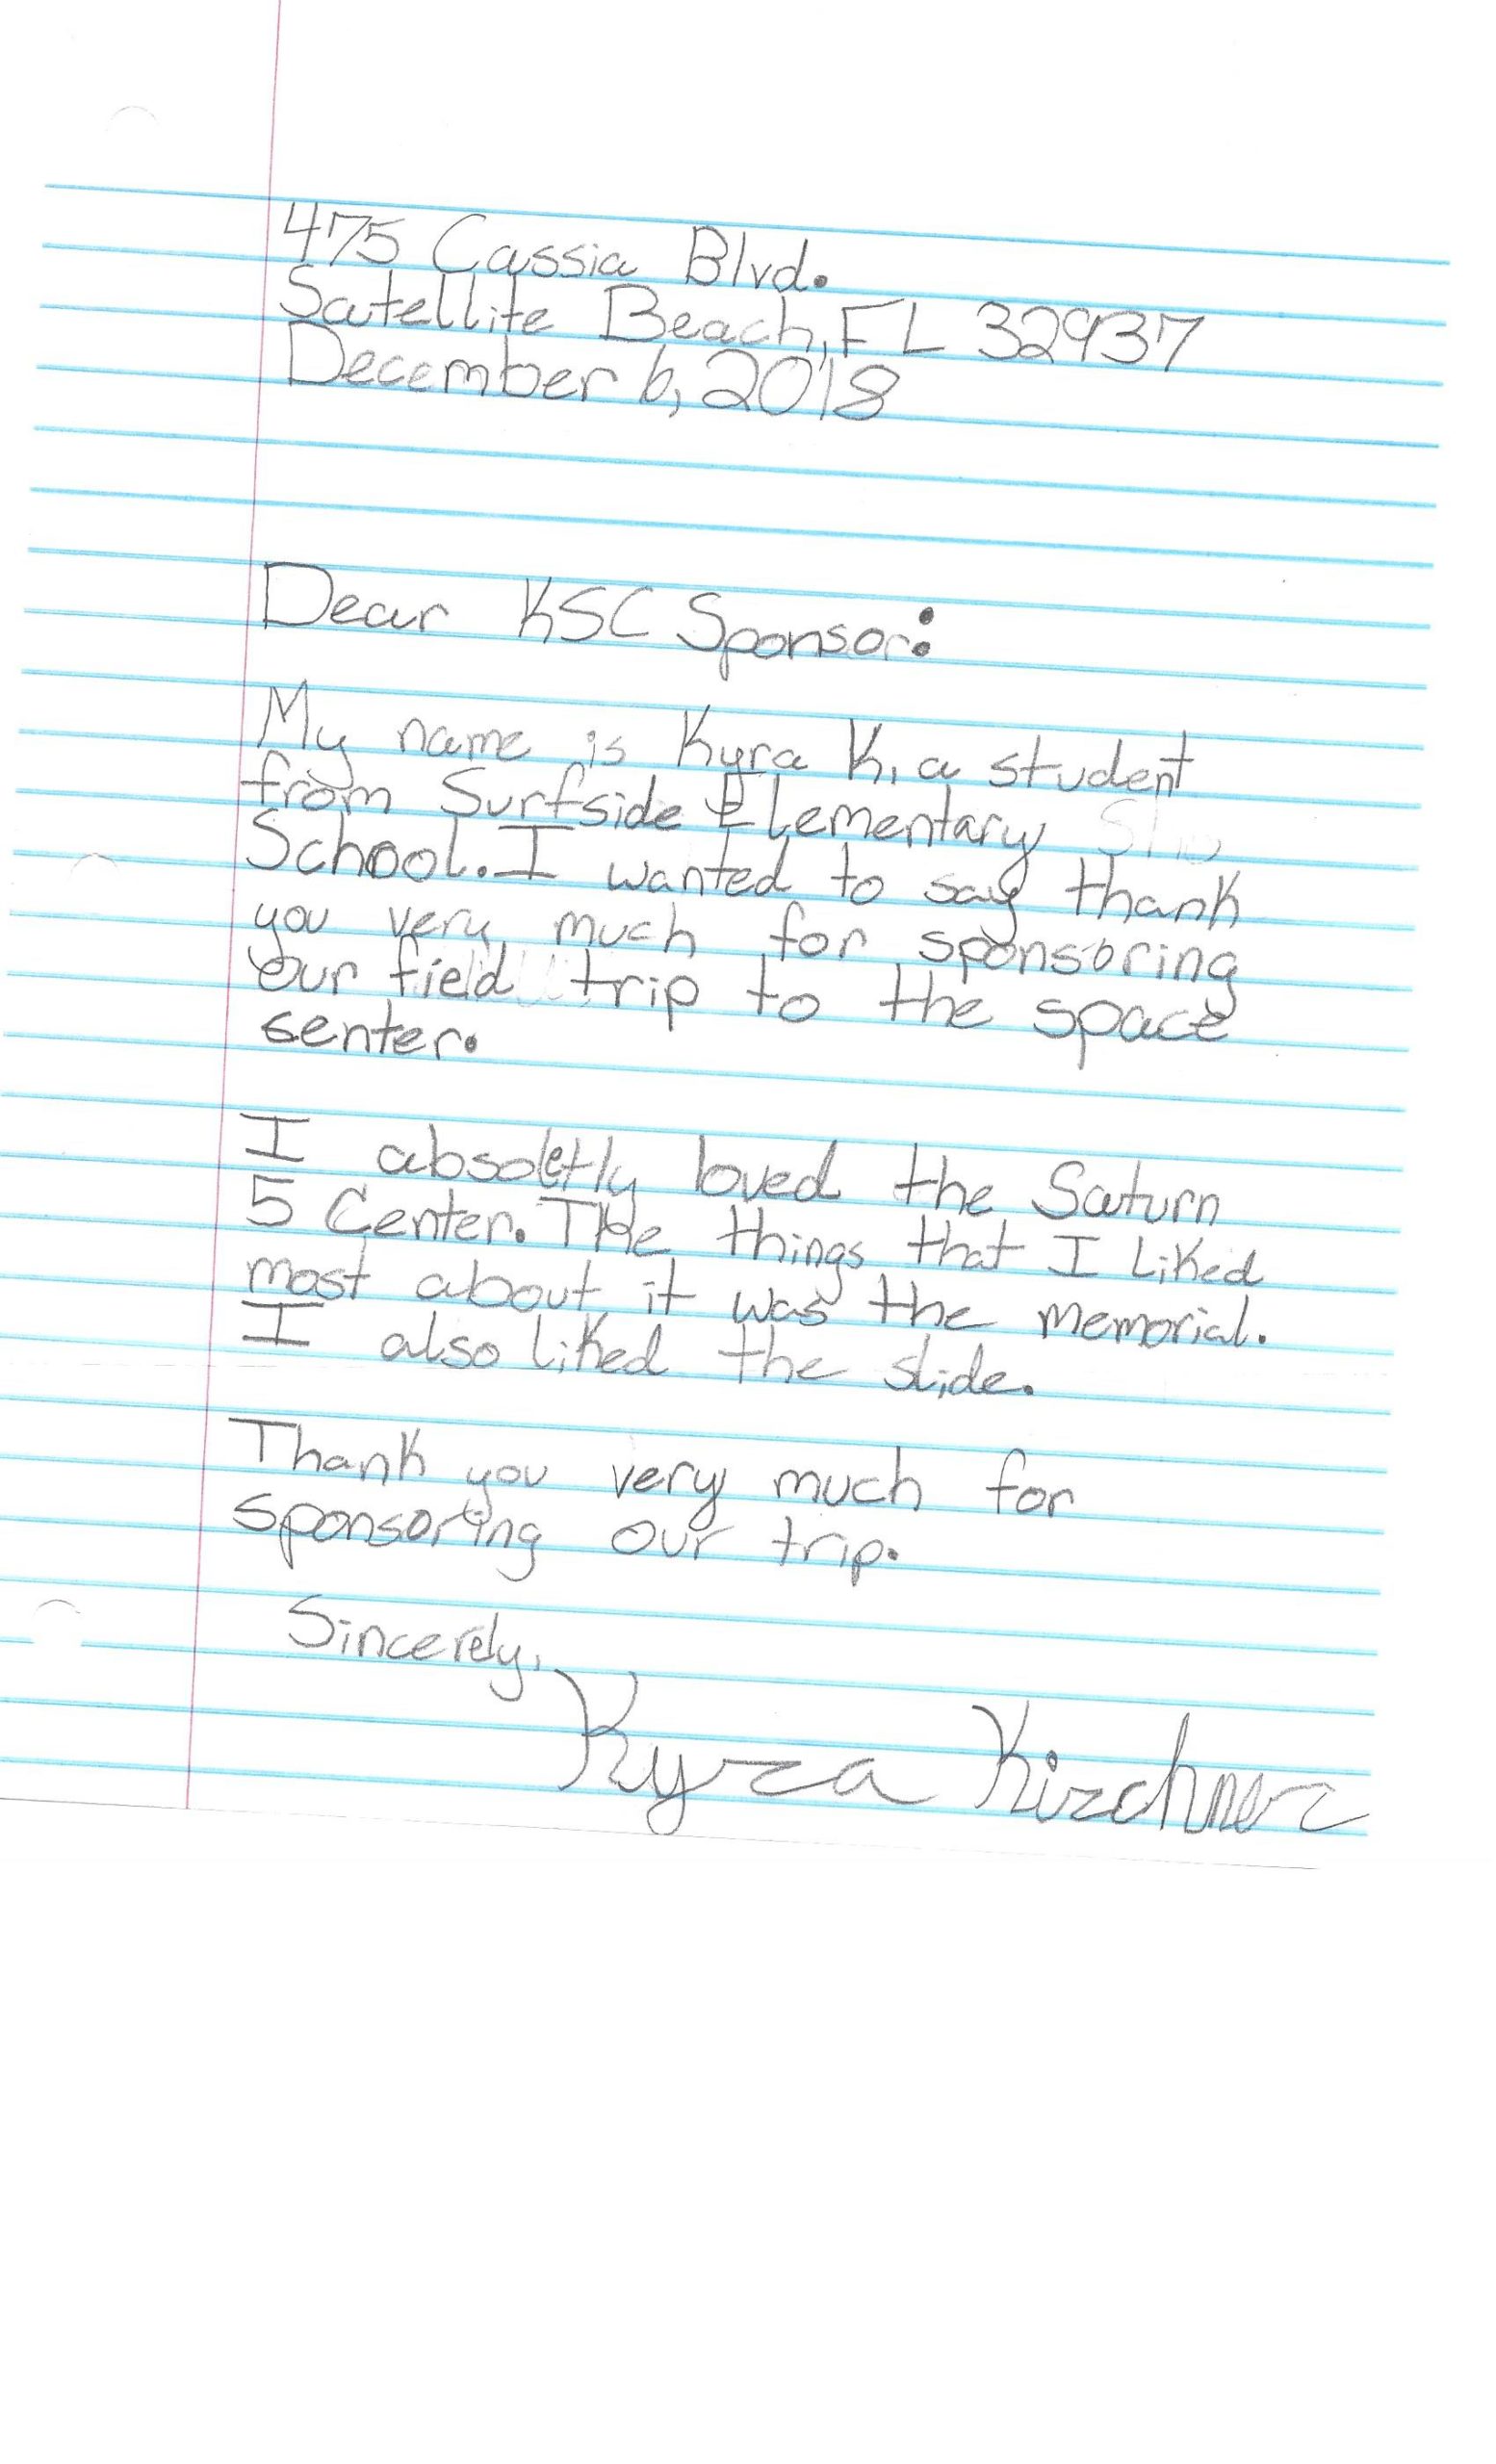 475 Cassia Blvd.
Satellite Beach, FL 32937
December 6, 2018
Dear KSC Sponsor:
My name is Kyra K, a student
from Surfside Elementary
School. I wanted to say thank
you very much for sponsoring
our field trip to the space
senter.
I absoletly loved the Saturn
5 Center. The things that I liked
most about it was the memorial.
I also liked the slide.
Thank you very much for
sponsoring our trip.
Sincerely,
Kyra Kirchner